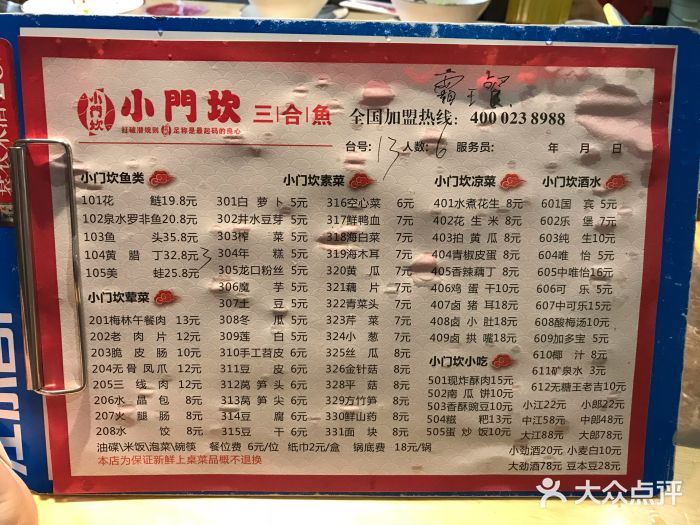 霸王餐
小門坎 三合魚
全国加盟热线：400 023 8988
台号： 13 人数： 6 服务员： 年 月 日
小门坎鱼类
101花 鲢19.8元
102泉水罗非鱼20.8元
103鱼 头35.8元
104黄 腊 丁32.8元 3
105美 蛙25.8元
小门坎荤菜
201梅林午餐肉 13元
202老 肉 片 12元
203脆 皮 肠 10元
204无 骨 凤 爪 12元
205三 线 肉 12元
206水 晶 包 8元
207火 腿 肠 8元
208水 饺 8元
小门坎素菜
301白 萝 卜 5元
302井水豆芽 5元
303榨 菜 5元
304年 糕 5元
305龙口粉丝 5元
306魔 芋 5元
307土 豆 5元
308冬 瓜 5元
309莲 白 5元
310手工苕皮 6元
311豆 皮 6元
312莴 笋 头 6元
313莴 笋 尖 6元
314豆 腐 6元
315豆 干 6元
316空心菜 6元
317鲜鸭血 7元
318海白菜 7元
319海木耳 7元
320黄 瓜 7元
321藕 片 7元
322青菜头 7元
323芹 菜 7元
324小 葱 7元
325丝 瓜 8元
326金针菇 8元
328平 菇 8元
329方竹笋 8元
330鲜山药 8元
331面 块 8元
小门坎凉菜
401水煮花生 8元
402花 生 米 8元
403拍 黄 瓜 8元
404青椒皮蛋 8元
405香辣藕丁 8元
406鸡 蛋 干10元
407卤 猪 耳18元
408卤 小 肚18元
409卤 拱 嘴18元
小门坎小吃
501现炸酥肉15元
502南 瓜 饼10元
503香酥豌豆10元
504糍 粑 13元
505蛋 炒 饭10元
小门坎酒水
601国 宾 5元
602乐 堡 7元
603纯 生10元
604唯 怡 5元
605中唯怡16元
606可 乐 5元
607中可乐15元
608酸梅汤10元
609加多宝 5元
610椰 汁 8元
611矿泉水 3元
612无糖王老吉10元
小江22元 小郎22元
中江58元 中郎48元
大江88元 大郎78元
小劲酒20元 小麦白10元
大劲酒78元 豆本豆28元
油碟\米饭\泡菜\碗筷 餐位费 6元/位 纸巾2元/盒 锅底费 18元/锅
本店为保证新鲜上桌菜品概不退换
大众点评